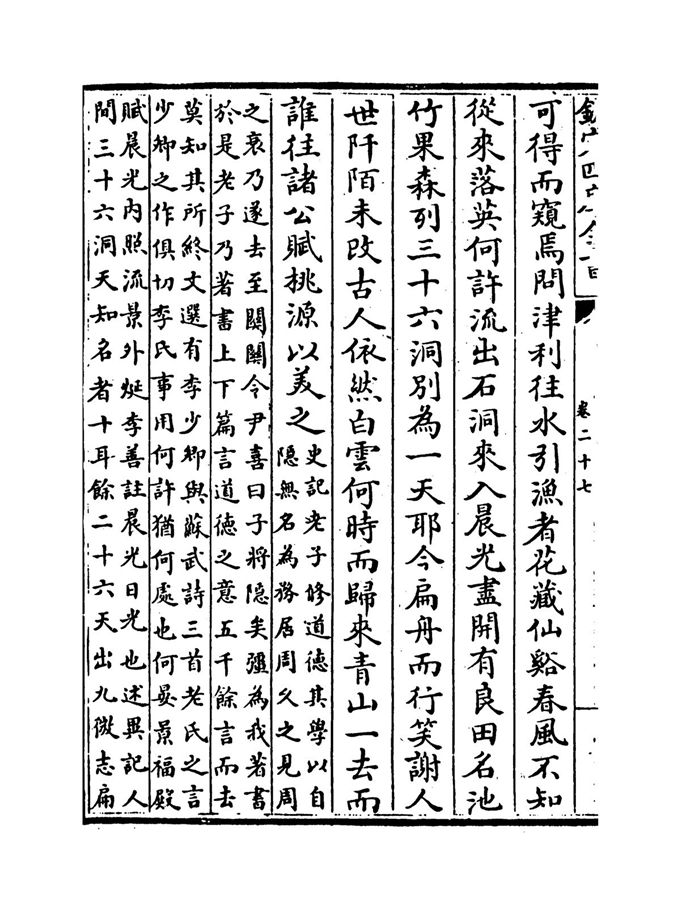 卷二十七
可得而窺焉問津利往水引漁者花藏仙谿春風不知
從來落英何許流出石洞來入晨光盡開有良田名池
竹果森列三十六洞別為一天耶今扁舟而行笑謝人
世阡陌未改古人依然白雲何時而歸來青山一去而
誰往諸公賦桃源以美之
史記老子修道德其學以自
隱無名為務居周久之見周
之衰乃遂去至關關令尹喜曰子將隱矣彊為我著書
於是老子乃著書上下篇言道德之意五千餘言而去
莫知其所終文選有李少卿與蘇武詩三首老氏之言
少卿之作俱切李氏事用何許猶何處也何晏景福殿
賦晨光內照流景外烻李善註晨光日光也述異記人
間三十六洞天知名者十耳餘二十六天出九微志扁